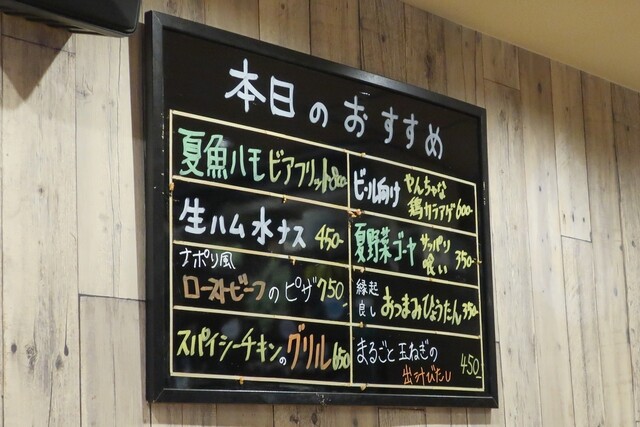 本日のおすすめ
夏魚ハモビアフリット800-
生ハム水ナス 450-
ナポリ風
ローストビーフのピザ750-
スパイシーチキンのグリル650
ビール向け やんちゃな
鶏カラアゲ600-
夏野菜ゴーヤ サッパリ
喰い 350-
縁起
良し おつまみひょうたん350-
まるごと玉ねぎの
出汁びたし 450